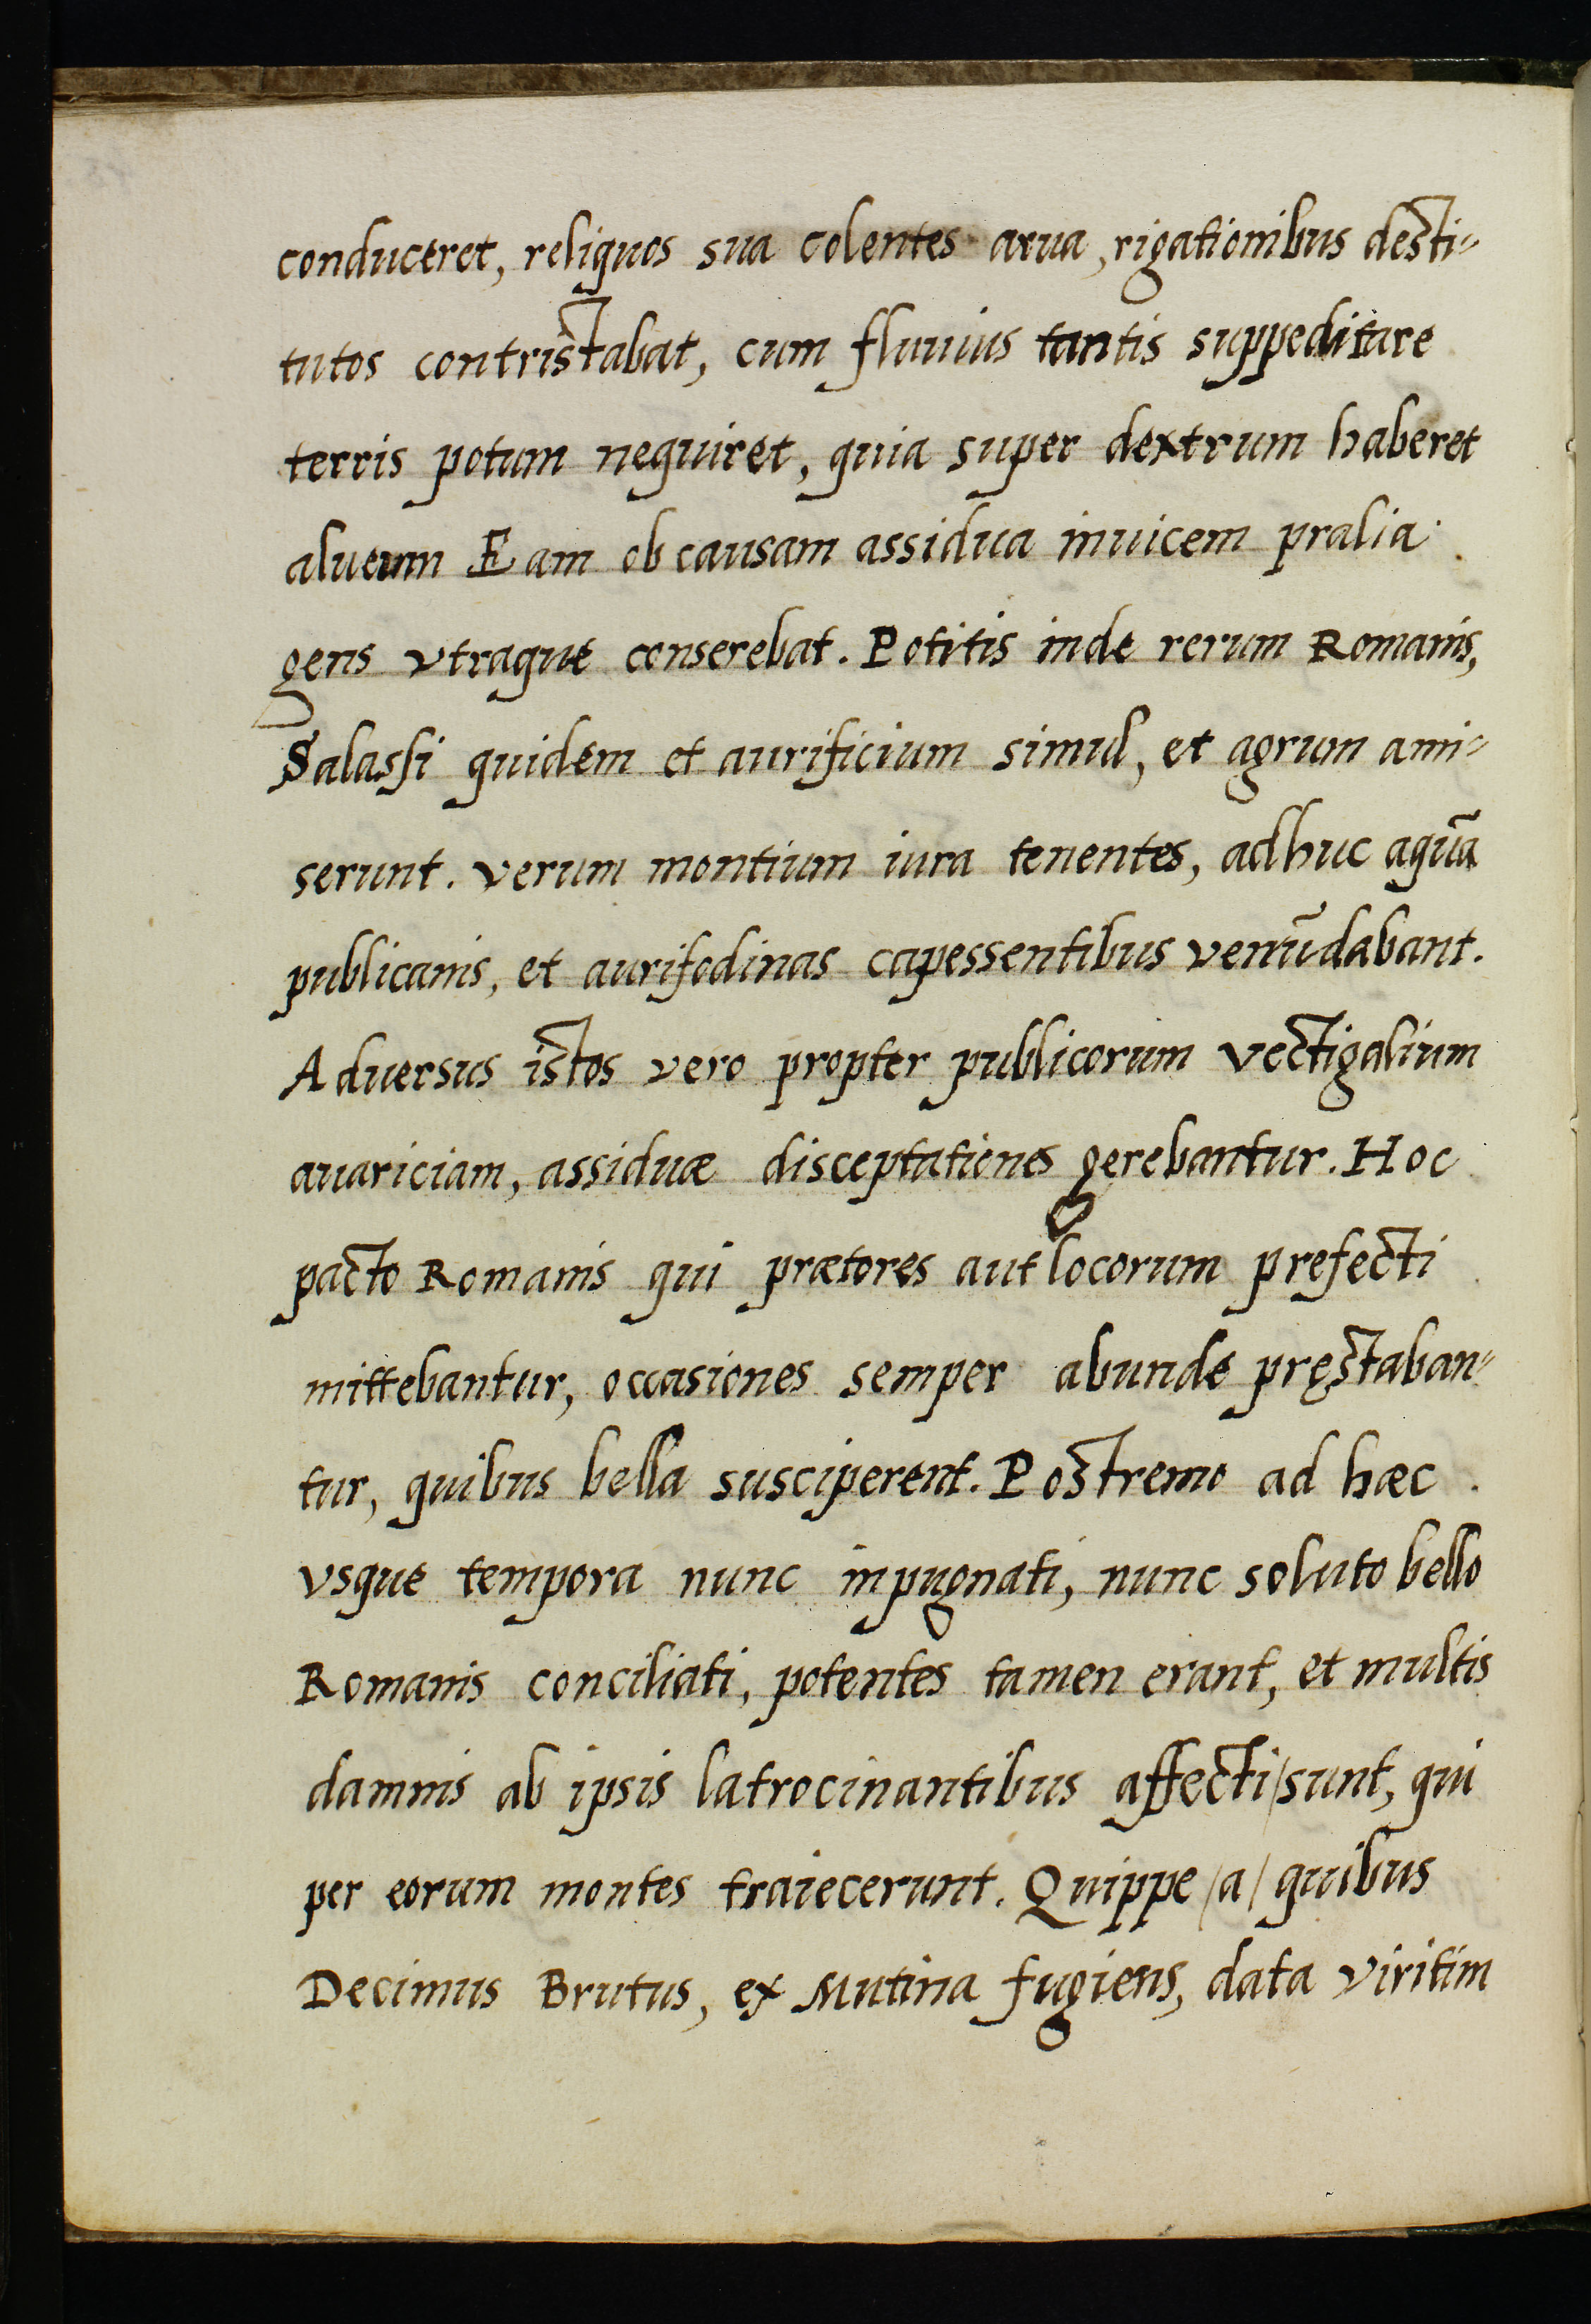 conduceret, reliquos sua colentes arua, rigationibus desti-
tutos contristabat, cum fluuius tantis suppeditare
terris potum nequiret, quia super dextrum haberet
alueum Eam ob causam assidua inuicem pralia
gens vtraque conserebat. Potitis inde rerum Romanis,
Salassi quidem et aurificium simul, et agrum ami-
serunt. verum montium iura tenentes, adhuc aquā
publicanis, et aurifodinas capessentibus venūdabant.
Aduersus istos vero propter publicorum vectigalium
auariciam, assiduæ disceptationes gerebantur. Hoc
pacto Romanis qui prætores aut locorum prefecti
mittebantur, occasiones semper abunde pręstaban-
tur, quibus bella susciperent. Postremo ad hæc
vsque tempora nunc inpugnati, nunc soluto bello
Romanis conciliati, potentes tamen erant, et multis
damnis ab ipsis latrocinantibus affecti/sunt, qui
per eorum montes traiecerunt. Quippe /a/ quibus
Decimus Brutus, ex Mutina fugiens, data viritim